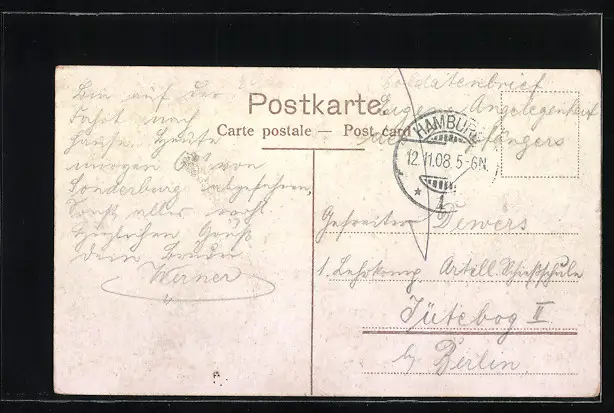 Postkarte.
Carte postale — Post card
Soldatenbrief
Eigene Angelegenheit
des Empfängers
HAMBURG
12.11.08. 5-6N.
* 1
Bin auf der
Fahrt nach
Hause. Heute
morgen von
Sonderburg abgefahren.
Sonst alles wohl
Herzlichen Gruß
Dein Bruder
Werner
Gefreiter Dewers
1. Lehrkomp. Artill. Schießschule
Jütebog II
b/ Berlin.